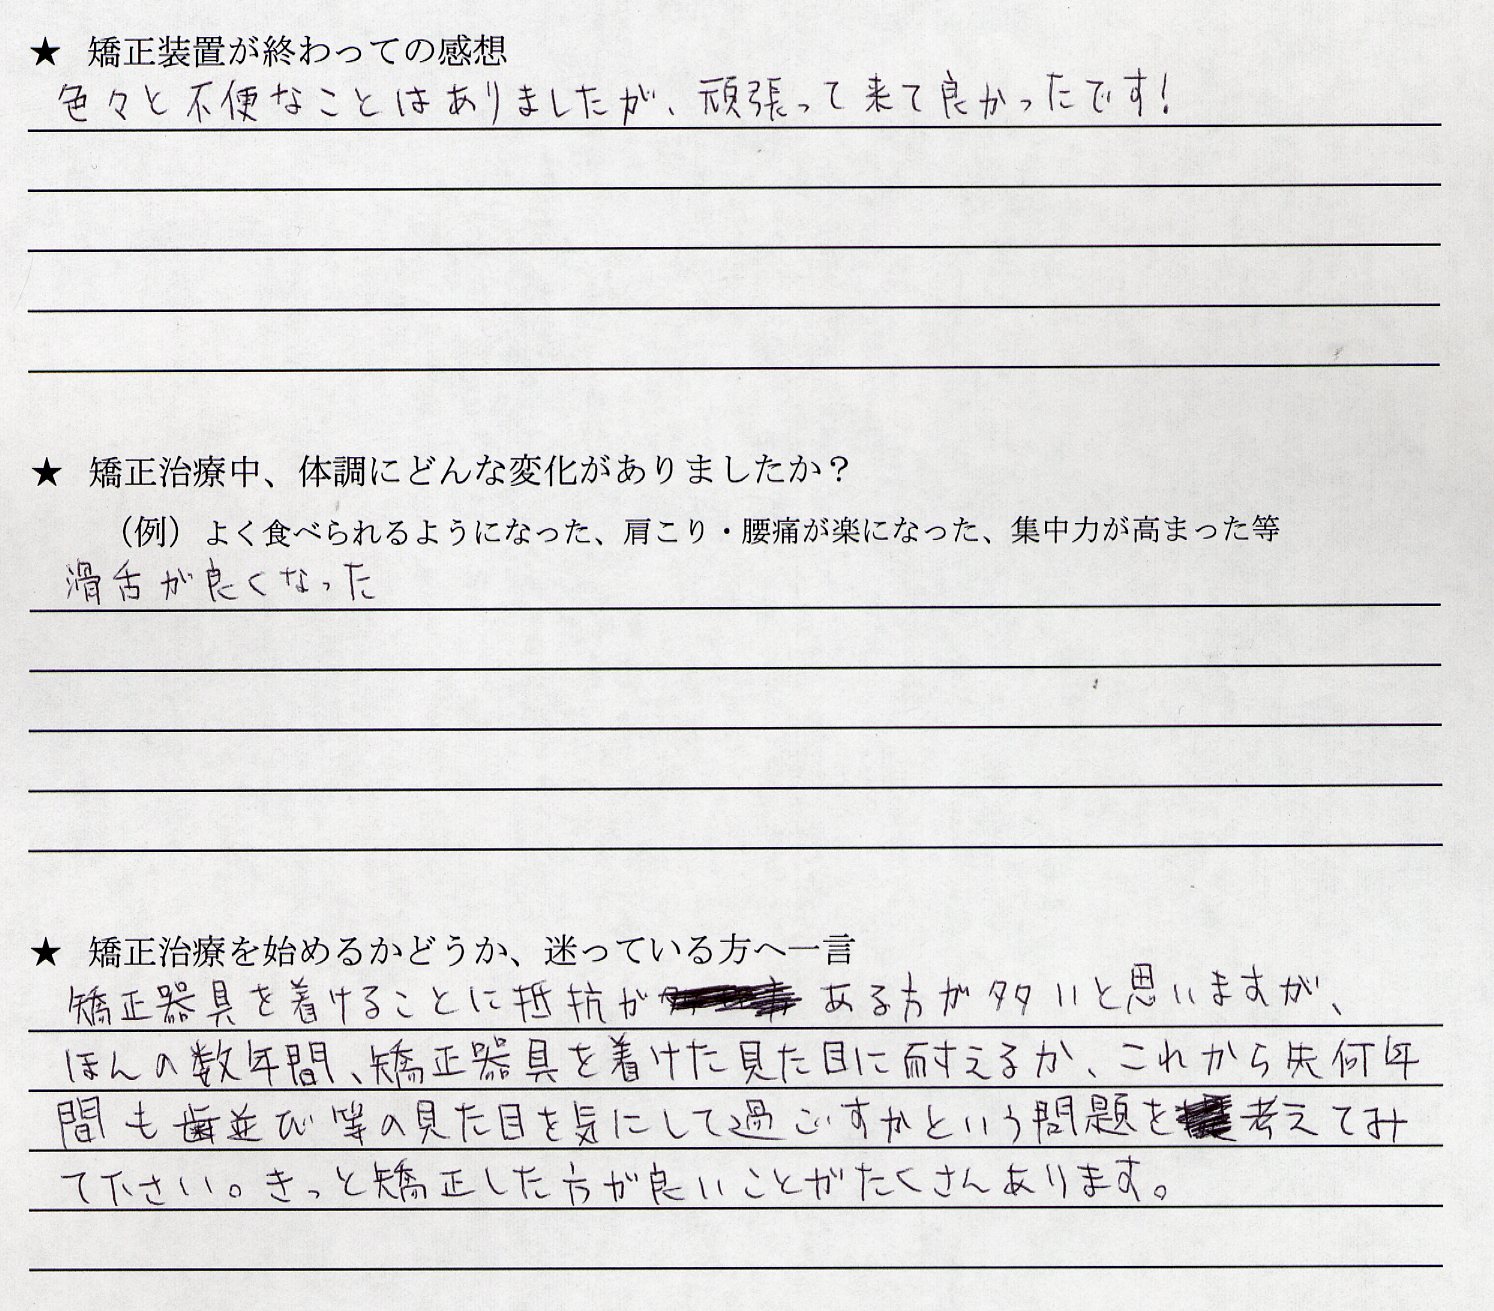 ★ 矯正装置が終わっての感想
色々と不便なことはありましたが、頑張って来て良かったです！
★ 矯正治療中、体調にどんな変化がありましたか？
（例）よく食べられるようになった、肩こり・腰痛が楽になった、集中力が高まった等
滑舌が良くなった
★ 矯正治療を始めるかどうか、迷っている方へ一言
矯正器具を着けることに抵抗が ある方が多いと思いますが、
ほんの数年間、矯正器具を着けた見た目に耐えるか、これから先何年
間も歯並び等の見た目を気にして過ごすかという問題を 考えてみ
て下さい。きっと矯正した方が良いことがたくさんあります。